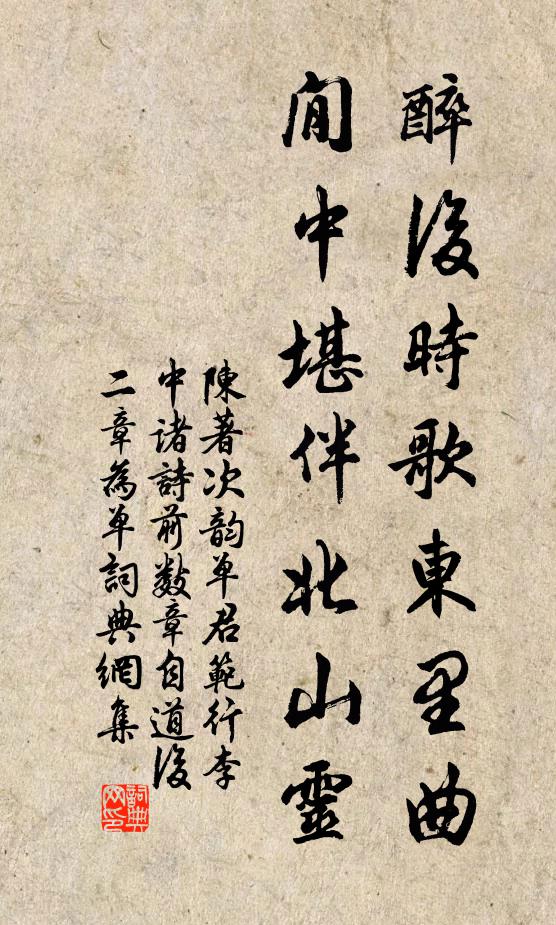 醉後時歌東里曲
閒中堪伴北山靈
陳著次韵单君範行李
中諸詩前數章自道後
二章為单詞典網集
詞典网印